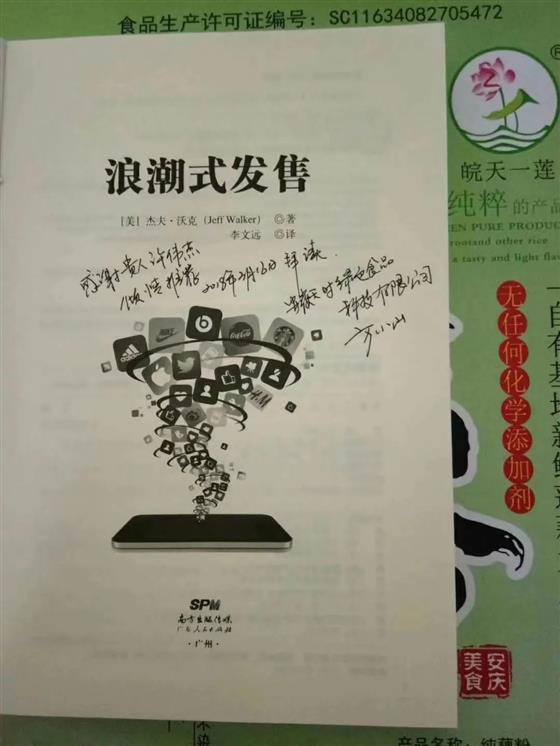 食品生产许可证编号：SC11634082705472
浪潮式发售
［美］杰夫·沃克（Jeff Walker）◎著
李文远 ◎译
感谢贵人许伟杰
倾情推荐
2018年3月16日 拜读
安徽天时绿色食品
科技有限公司
adidas
NIKE
Coca-Cola
SPM
南方出版传媒
广东人民出版社
·广州·
®
皖天一莲
纯粹的产品
EEN PURE PRODUC
rootand other rice
a tasty and light flav
无任何化学添加剂
自有基地新鲜莲
安庆
美食
不染
产品名称：纯藕粉